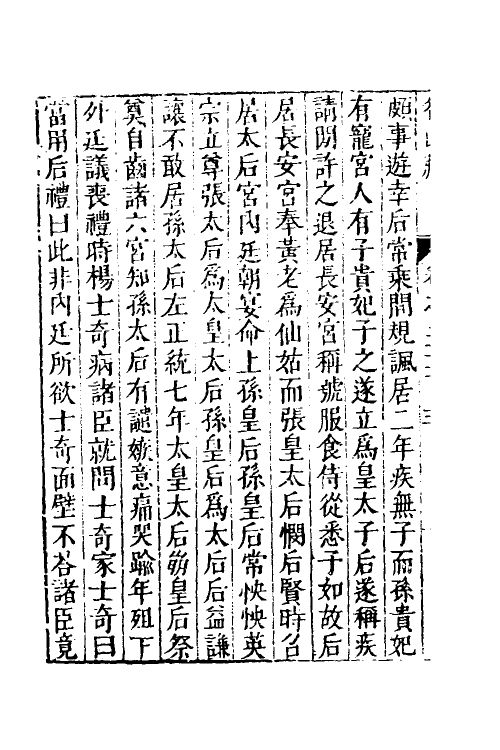 頗事遊幸后常乘間規諷居二年疾無子而孫貴妃
有寵宮人有子貴妃子之遂立爲皇太子后遂稱疾
請閒許之退居長安宮稱號服食侍從悉于如故后
居長安宮奉黃老爲仙姑而張皇太后憫后賢時召
居太后宮內廷朝宴命上孫皇后孫皇后常怏怏英
宗立尊張太后爲太皇太后孫皇后爲太后后益謙
讓不敢居孫太后左正統七年太皇太后崩皇后祭
奠自齒諸六宮知孫太后有譴嫉意痛哭踰年殂下
外廷議喪禮時楊士奇病諸臣就問士奇家士奇曰
當用后禮曰此非內廷所欲士奇面壁不答諸臣竟